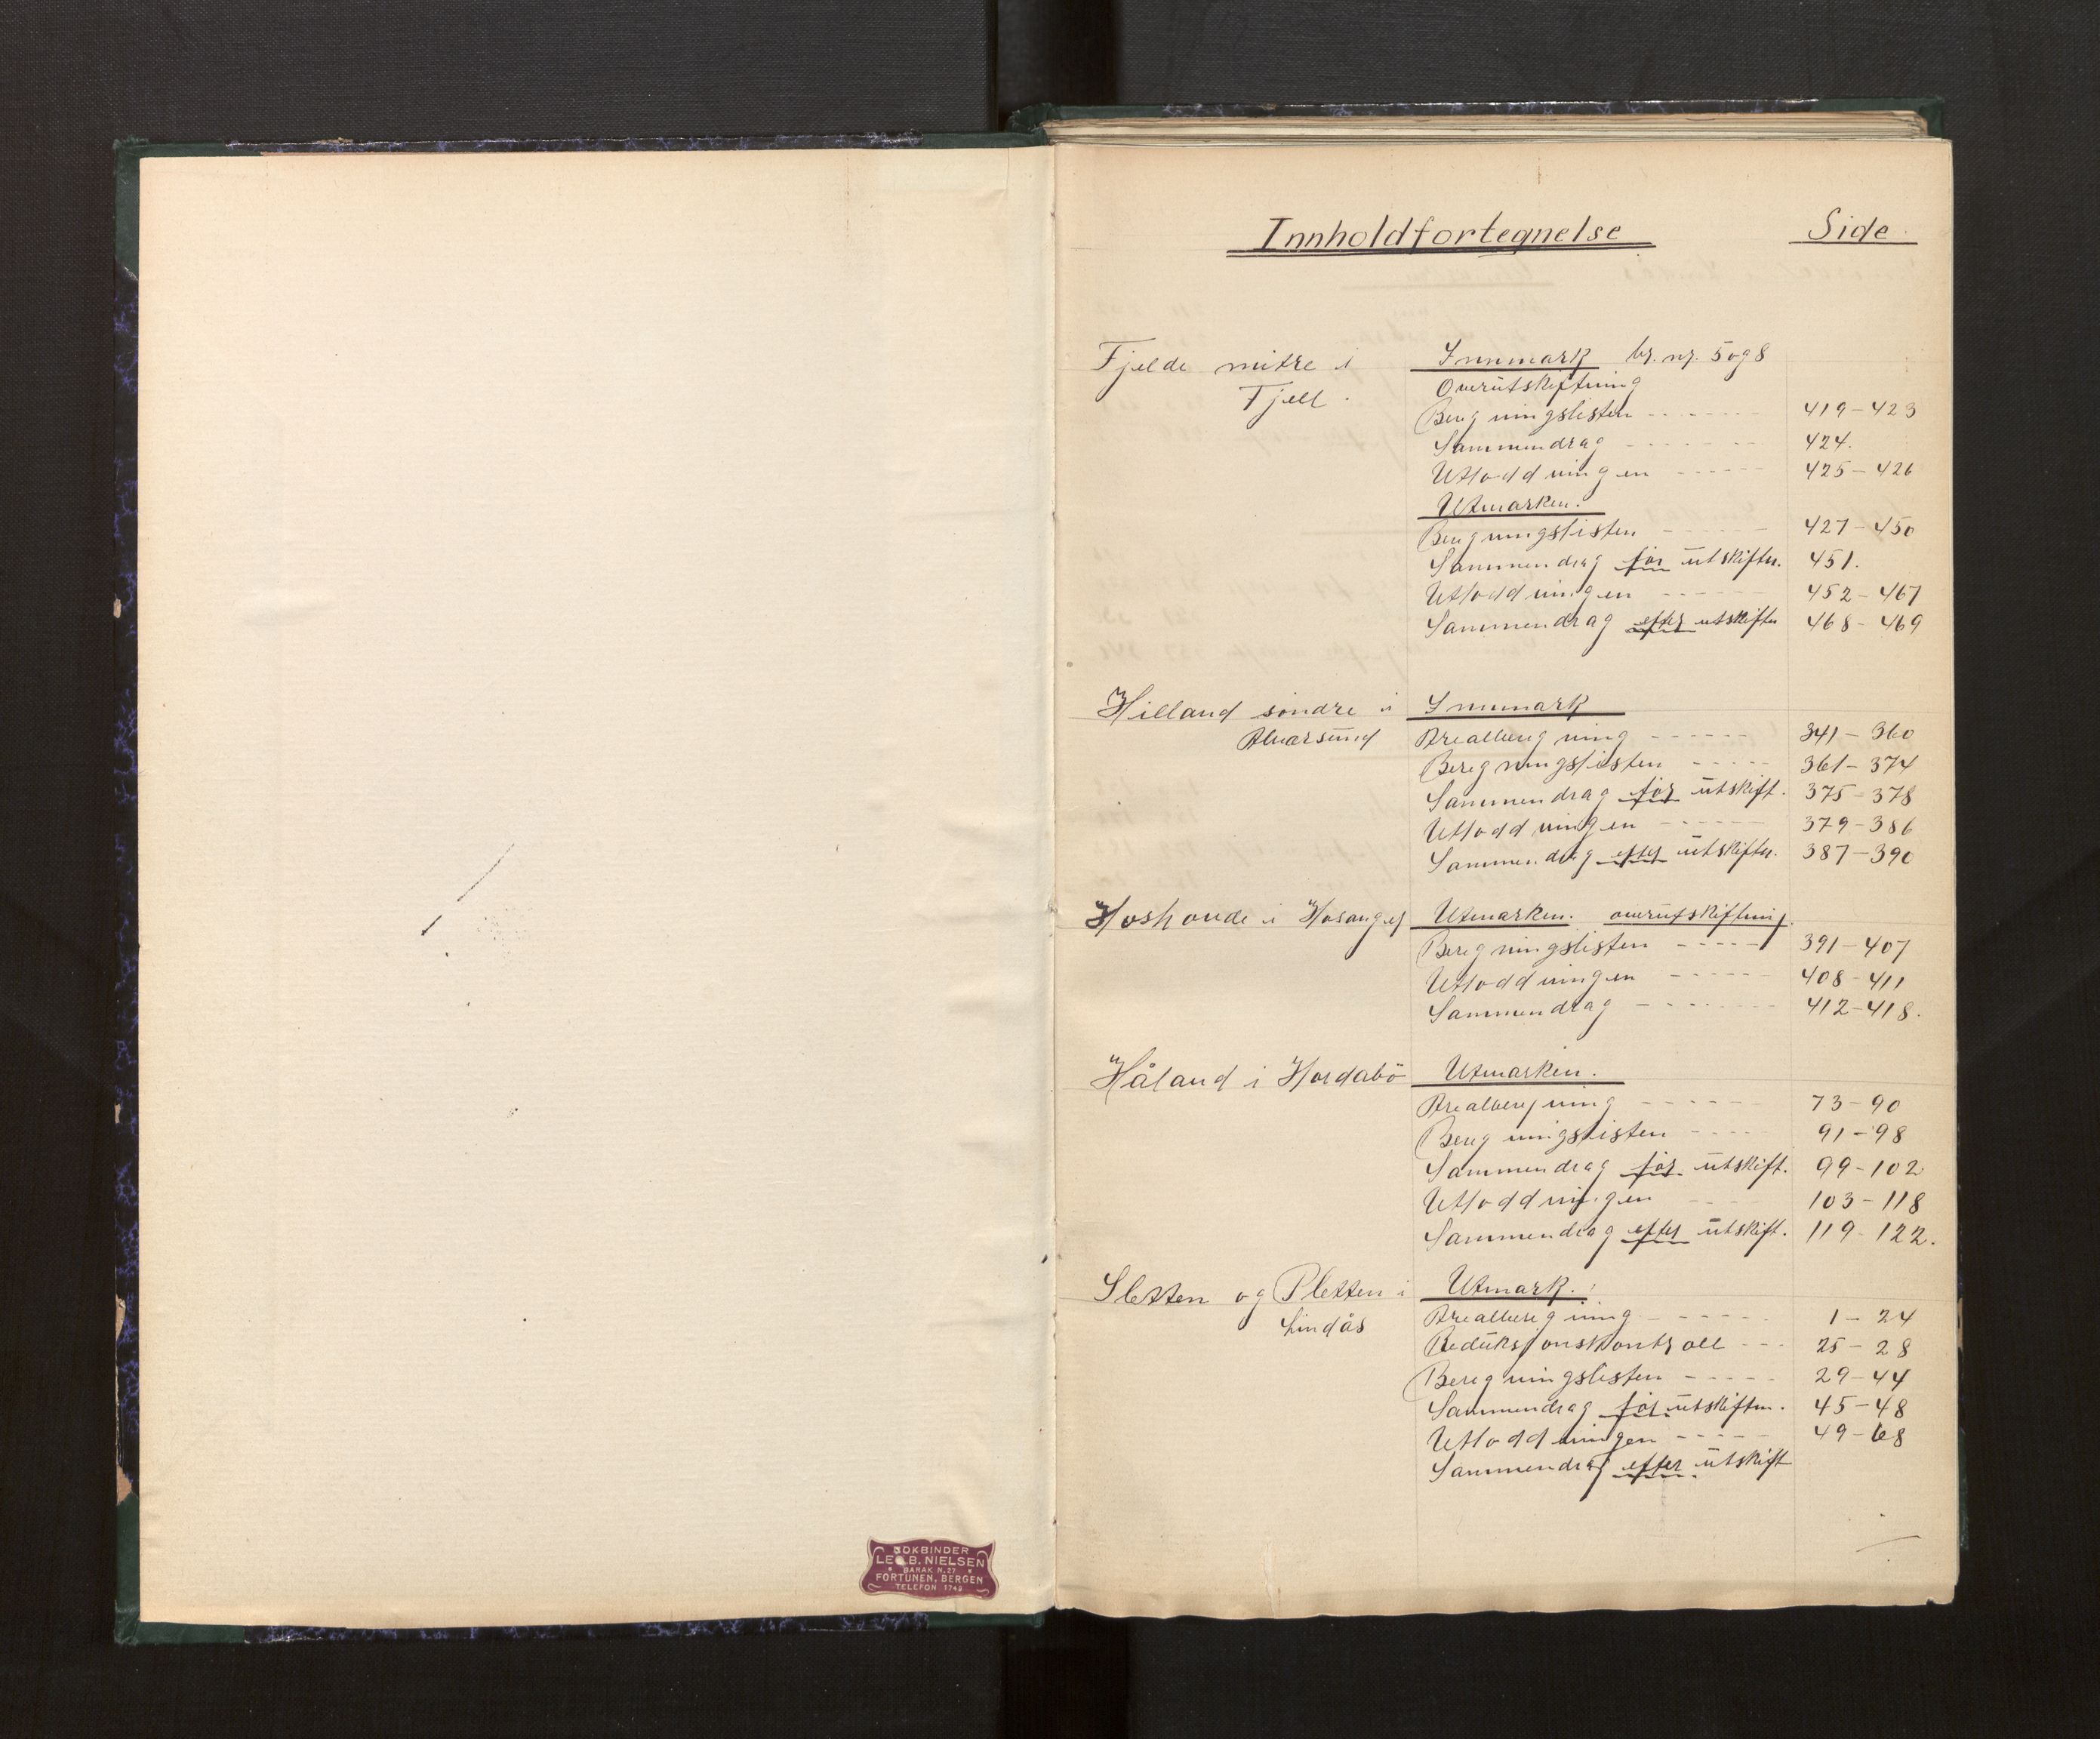 BOKBINDER
LEO B. NIELSEN
BARAK N. 27
FORTUNEN, BERGEN
TELEFON 1748
Innholdfortegnelse Side
Fjelde mitre i Innmark br. nr. 5 og 8
Fjell. Overutskiftning
Beregningslisten ------ 419-423
Sammendrag ------ 424.
Utloddningen ------ 425-426
Utmarken.
Beregningslisten ------ 427-450
Sammendrag før utskiftn. 451.
Utloddningen ------ 452-467
Sammendrag efter utskiftn 468-469
Hilland søndre i Innmark
Alversund Arealberegning ------ 341-360
Beregningslisten ----- 361-374
Sammendrag før utskift. 375-378
Utloddningen ------ 379-386
Sammendrag efter utskiftn. 387-390
i Hosanger Utmarken. overutskiftning.
Beregningslisten ----- 391-407
Utloddningen ----- 408-411
Sammendrag ------ 412-418.
Håland i Hordabö Utmarken.
Arealberegning ------ 73-90
Beregningslisten ---- 91-98
Sammendrag før utskift. 99-102
Utloddningen ---- 103-118
Sammendrag efter utskift. 119-122.
Sletten og Pletten i Utmark.
Lindås Arealberegning ------ 1-24
Reduksjonskontroll --- 25-28
Beregningslisten ----- 29-44
Sammendrag før utskiftn. 45-48
Utloddningen ----- 49-68
Sammendrag efter utskift